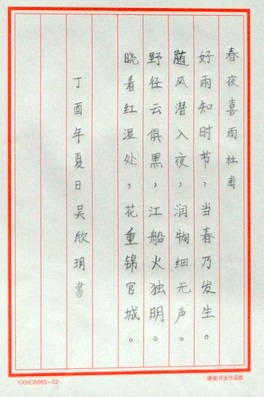 春夜喜雨 杜甫
好雨知时节，当春乃发生。
随风潜入夜，润物细无声。
野径云俱黑，江船火独明。
晓看红湿处，花重锦官城。
丁酉年夏日吴欣玥书
YXHC6865-02
硬笔书法作品纸